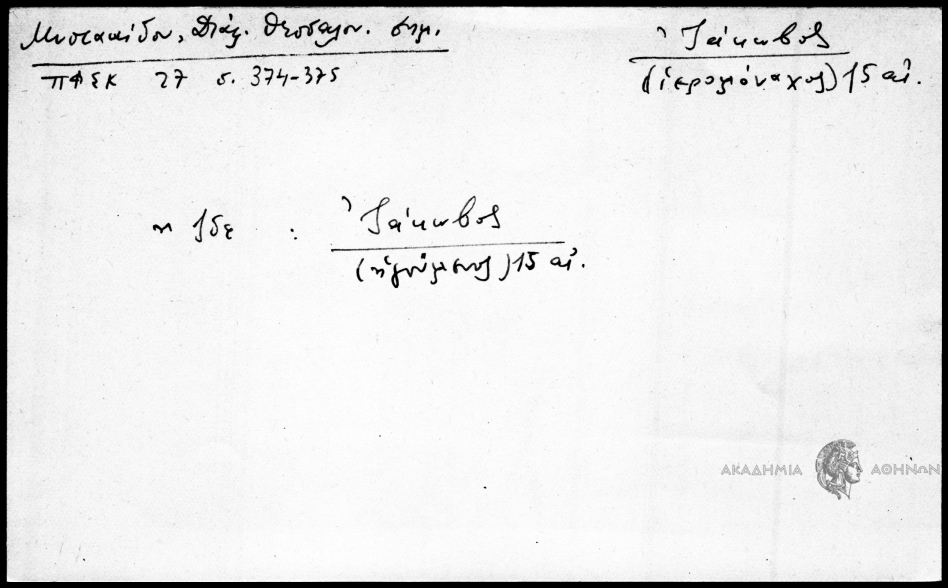 Μυστακίδου, Διάλ. Θεσσαλον. σημ.
ΠΦΣΚ 27 σ. 374-375
Ἰάκωβος
(ἱερομόναχος) 15 αἰ.
ἰδε : Ἰάκωβος
(ἡγούμενος) 15 αἰ.
ΑΚΑΔΗΜΙΑ ΑΘΗΝΩΝ